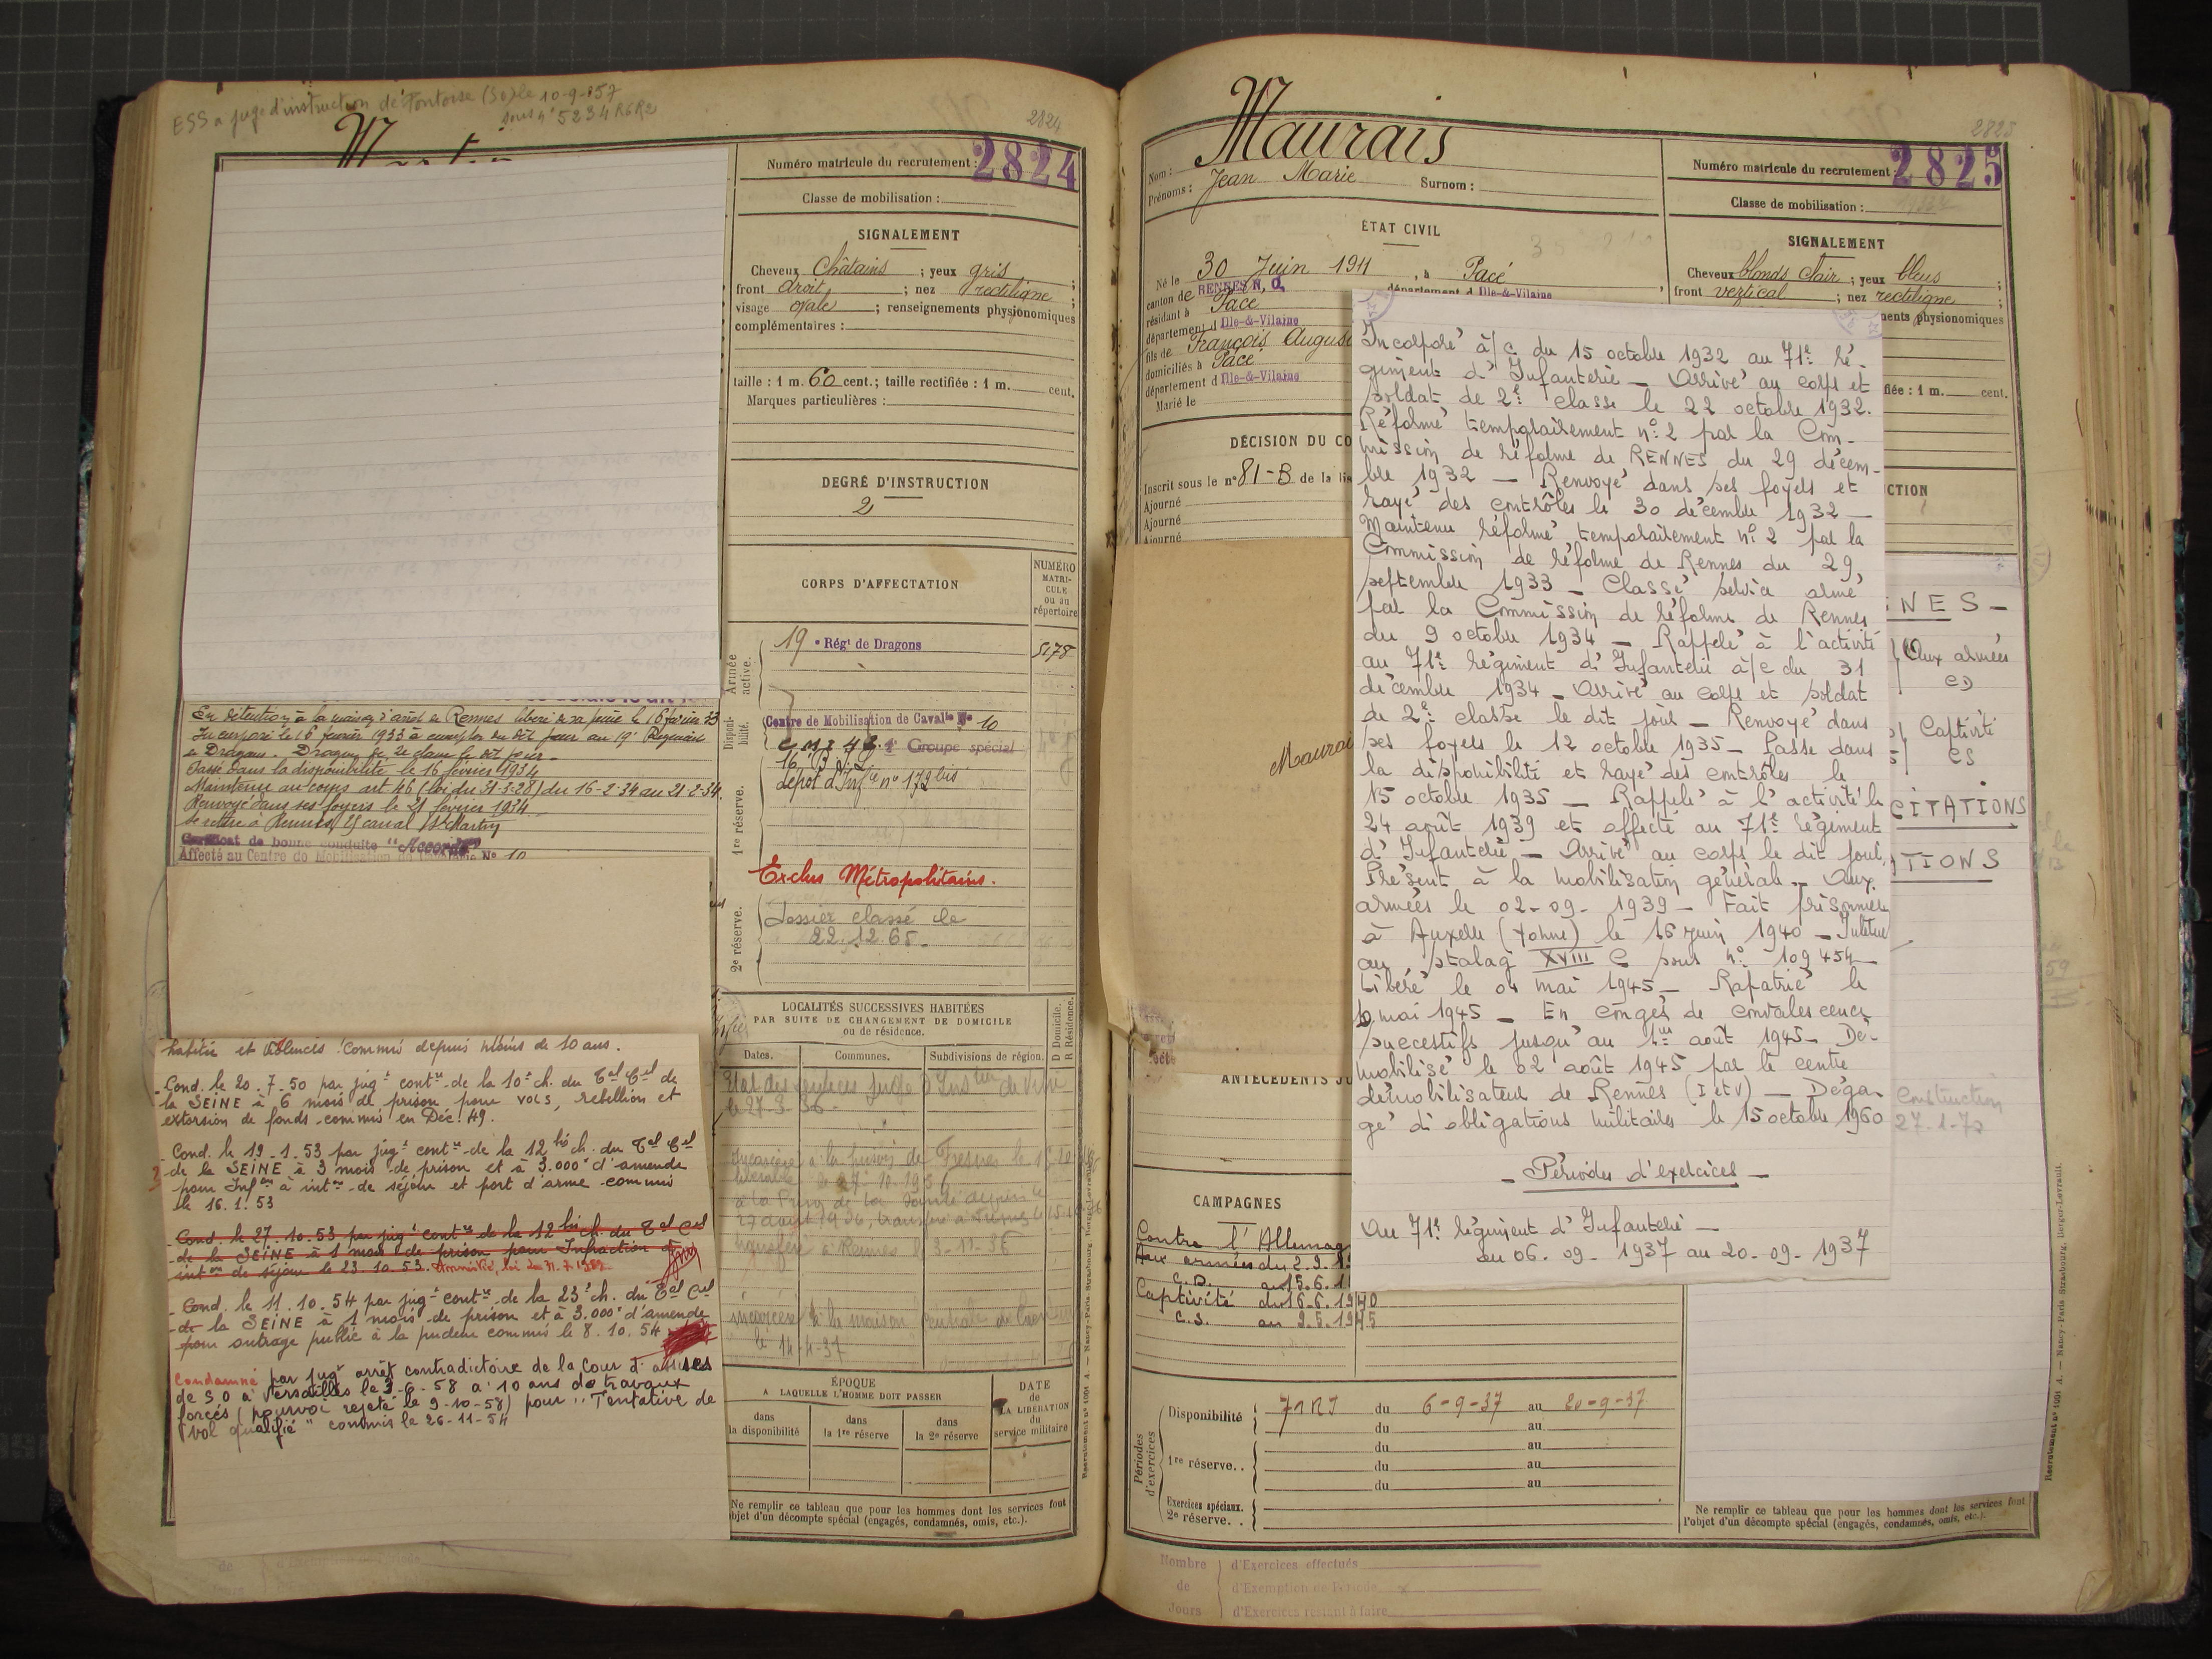 ESS a juge d'instruction de Pontoise (SO) le 10-9-57
sous n° 5234 R6R2
2824
Numéro matricule du recrutement : 2824
Classe de mobilisation :
SIGNALEMENT
Cheveux Châtains ; yeux gris ;
front droit ; nez rectiligne ;
visage ovale ; renseignements physionomiques
complémentaires :
taille : 1 m. 60 cent.; taille rectifiée : 1 m. cent.
Marques particulières :
DEGRÉ D'INSTRUCTION
2
CORPS D'AFFECTATION
NUMÉRO
MATRI-
CULE
ou au
répertoire
Armée active.
19e Régt de Dragons
5178
Disponibilité.
Centre de Mobilisation de Cavalie No 10
Groupe spécial
dépôt d'Infie n° 172 bis
1re réserve.
Exclus Métropolitains.
2e réserve.
dossier classé le
22.12.65.
En détention à la maison d'arrêt de Rennes libéré de sa peine le 16 février 33
Incorporé le 16 février 1933 à compter du dit jour au 19e Régiment
de Dragons. Dragon de 2e classe le dit jour.
Passé dans la disponibilité le 16 février 1934
Maintenu au corps art 46 (loi du 31-3-28) du 16-2-34 au 21-2-34.
Renvoyé dans ses foyers le 21 février 1934
Se retire à Rennes canal St Martin
Certificat de bonne conduite "Accordé"
Affecté au Centre de Mobilisation de Cavalerie No 10
habité et violences. Commis depuis moins de 10 ans.
- Cond. le 20.7.50 par jugt contre de la 10e ch. du Tal Cel de
la SEINE à 6 mois de prison pour vols, rébellion et
extorsion de fonds commis en Déc. 49.
- Cond. le 19-1-53 par jugt contre de la 12 ch. du Tal Cel
de la SEINE à 3 mois de prison et à 3.000f d'amende
pour Infon à inton de séjour et port d'arme commis
le 16.1.53
- Cond. le 27.10.53 par jugt contre de la 12 bis ch. du Tal Cel
de la SEINE à 1 mois de prison pour Infraction à
inton de séjour le 23.10.53.
- Cond. le 11.10.54 par jugt contre de la 23e ch. du Tal Cel
de la SEINE à 1 mois de prison et à 3.000f d'amende
pour outrage public à la pudeur commis le 8.10.54
Condamné par jugt arrêt contradictoire de la Cour d'assises
de S O à Versailles le 3-6-58 à 10 ans de travaux
forcés (pourvoi rejeté le 9-10-58) pour "Tentative de
vol qualifié" commis le 26-11-54
LOCALITÉS SUCCESSIVES HABITÉES
PAR SUITE DE CHANGEMENT DE DOMICILE
ou de résidence.
D Domicile.
R Résidence.
Dates.
Communes.
Subdivisions de région.
le 27-3-36.
incarcéré à la prison de Fresnes
transféré à Rennes le 3-11-36
incarcéré à la maison centrale de Caen
le 14-4-37
ÉPOQUE
A LAQUELLE L'HOMME DOIT PASSER
dans la disponibilité
dans la 1re réserve
dans la 2e réserve
DATE
de
LA LIBÉRATION
du
service militaire
Ne remplir ce tableau que pour les hommes dont les services font
l'objet d'un décompte spécial (engagés, condamnés, omis, etc.).
2825
Nom : Maurais
Prénoms : Jean Marie Surnom :
Numéro matricule du recrutement : 2825
Classe de mobilisation :
ÉTAT CIVIL
Né le 30 Juin 1911, à Pacé
canton de RENNES N.O. département d Ille-&-Vilaine
résidant à Pacé
département d Ille-&-Vilaine
fils de François Augus
domiciliés à Pacé
département d Ille-&-Vilaine
Marié le
SIGNALEMENT
Cheveux blonds clair ; yeux bleus ;
front vertical ; nez rectiligne ;
physionomiques
fiée : 1 m. cent.
DÉCISION DU CO
Inscrit sous le n° 81-B de la lis
Ajourné
Ajourné
Ajourné
CTION
Incorporé à/c du 15 octobre 1932 au 71e ré-
giment d'Infanterie - Arrivé au corps et
soldat de 2e classe le 22 octobre 1932.
Réformé temporairement n° 2 par la Com-
mission de réforme de RENNES du 29 décem-
bre 1932 - Renvoyé dans ses foyers et
rayé des contrôles le 30 décembre 1932 -
Maintenu réformé temporairement n° 2 par la
Commission de réforme de Rennes du 29
septembre 1933 - Classé service armé
par la Commission de réforme de Rennes
du 9 octobre 1934 - Rappelé à l'activité
au 71e régiment d'Infanterie à/c du 31
décembre 1934 - Arrivé au corps et soldat
de 2e classe le dit jour - Renvoyé dans
ses foyers le 12 octobre 1935 - Passé dans
la disponibilité et rayé des contrôles le
15 octobre 1935 - Rappelé à l'activité le
24 août 1939 et affecté au 71e régiment
d'Infanterie - Arrivé au corps le dit jour,
Présent à la mobilisation générale - Aux
armées le 02-09-1939 - Fait prisonnier
à Auxelle (Yonne) le 16 juin 1940 - Interné
au stalag XVIII C sous n° 109454 -
Libéré le 04 mai 1945 - Rapatrié le
10 mai 1945 - En congés de convalescence
successifs jusqu'au 1er août 1945 - Dé-
mobilisé le 02 août 1945 par le centre
démobilisateur de Rennes (I et V) - Déga-
gé d'obligations militaires le 15 octobre 1960
- Périodes d'exercices -
Au 71e régiment d'Infanterie -
du 06.09-1937 au 20-09-1937
NES -
Aux armées
CD
Captivité
CS
CITATIONS
TIONS
Construction
27-1-72
Maurai
ANTÉCÉDENTS JU
CAMPAGNES
Contre l'Allemag
Aux armées du 2.9.
C.D. au 15.6.
Captivité du 16.6.1940
C.S. au 9.5.1945
Périodes d'exercices
Disponibilité 71 RI du 6-9-37 au 20-9-37
du au
1re réserve.. du au
du au
du au
Exercices spéciaux.
2e réserve. .
Ne remplir ce tableau que pour les hommes dont les services font
l'objet d'un décompte spécial (engagés, condamnés, omis, etc.).
Recrutement n° 1001 A. — Nancy-Paris-Strasbourg, Berger-Levrault.
Nombre de Jours
d'Exercices effectués
d'Exemption de Période
d'Exercices restant à faire